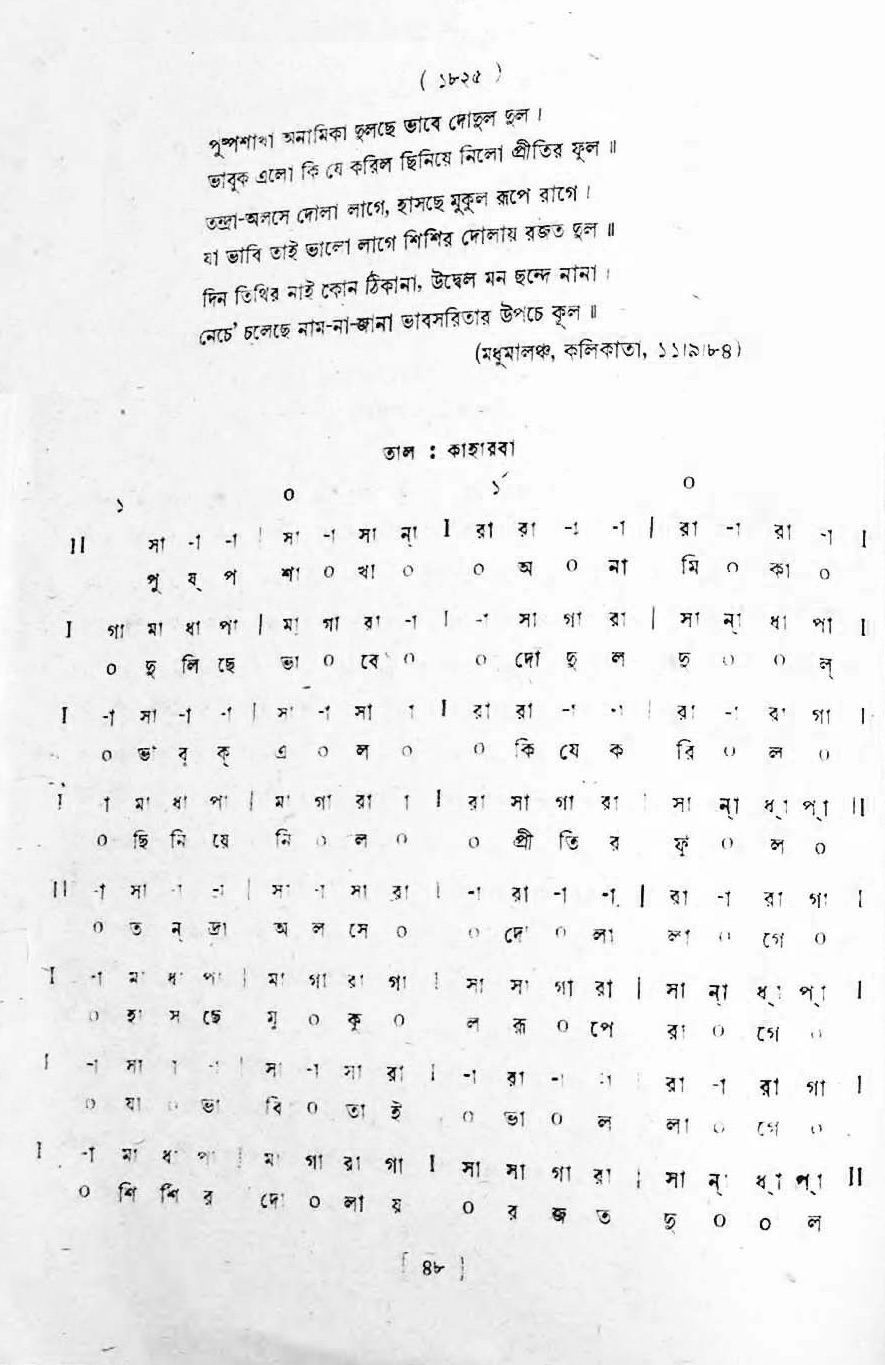 ( ১৮২৫ )
পুষ্পশাখা অনামিকা দুলছে ভাবে দোদুল দুল ।
ভাবুক এলো কি যে করিল ছিনিয়ে নিলো প্রীতির ফুল ॥
তন্দ্রা-অলসে দোলা লাগে, হাসছে মুকুল রূপে রাগে ।
যা ভাবি তাই ভালো লাগে শিশির দোলায় রজত দুল ॥
দিন তিথির নাই কোন ঠিকানা, উদ্বেল মন ছন্দে নানা ।
নেচে' চলেছে নাম-না-জানা ভাবসরিতার উপচে কূল ॥
(মধুমালঞ্চ, কলিকাতা, ১১।৯।৮৪)
তাল : কাহারবা
১ ০ ১´ ০
II সা -া -া | সা -া সা ন্া I রা রা -া -া | রা -া রা -া I
পু ষ্ প শা ০ খা ০ ০ অ ০ না মি ০ কা ০
I গা মা ধা পা | মা গা রা -া I -া সা গা রা | সা ন্া ধা পা I
০ দু লি ছে ভা ০ বে ০ ০ দো দু ল দু ০ ০ ল্
I -া সা -া -া | সা -া সা া I রা রা -া -া | রা -া রা গা I
০ ভা বু ক্ এ ০ ল ০ ০ কি যে ক রি ০ ল ০
I া মা ধা পা | মা গা রা া I রা সা গা রা | সা ন্া ধ্া প্া II
০ ছি নি য়ে নি ০ ল ০ ০ প্রী তি র ফু ০ ল ০
II -া সা -া -া | সা -া সা রা I -া রা -া -া | রা -া রা গা I
০ ত ন্ দ্রা অ ল সে ০ ০ দো ০ লা লা ০ গে ০
I -া মা ধা পা | মা গা রা গা I সা সা গা রা | সা ন্া ধ্া প্া I
০ হা স ছে মু ০ কু ০ ল রূ ০ পে রা ০ গে ০
I -া সা া -া | সা -া সা রা I -া রা -া -া | রা -া রা গা I
০ যা ০ ভা বি ০ তা ই ০ ভা ০ ল লা ০ গে ০
I -া মা ধা পা | মা গা রা গা I সা সা গা রা | সা ন্া ধ্া প্া II
০ শি শি র দো ০ লা য় ০ র জ ত দু ০ ০ ল
[ ৪৮ ]